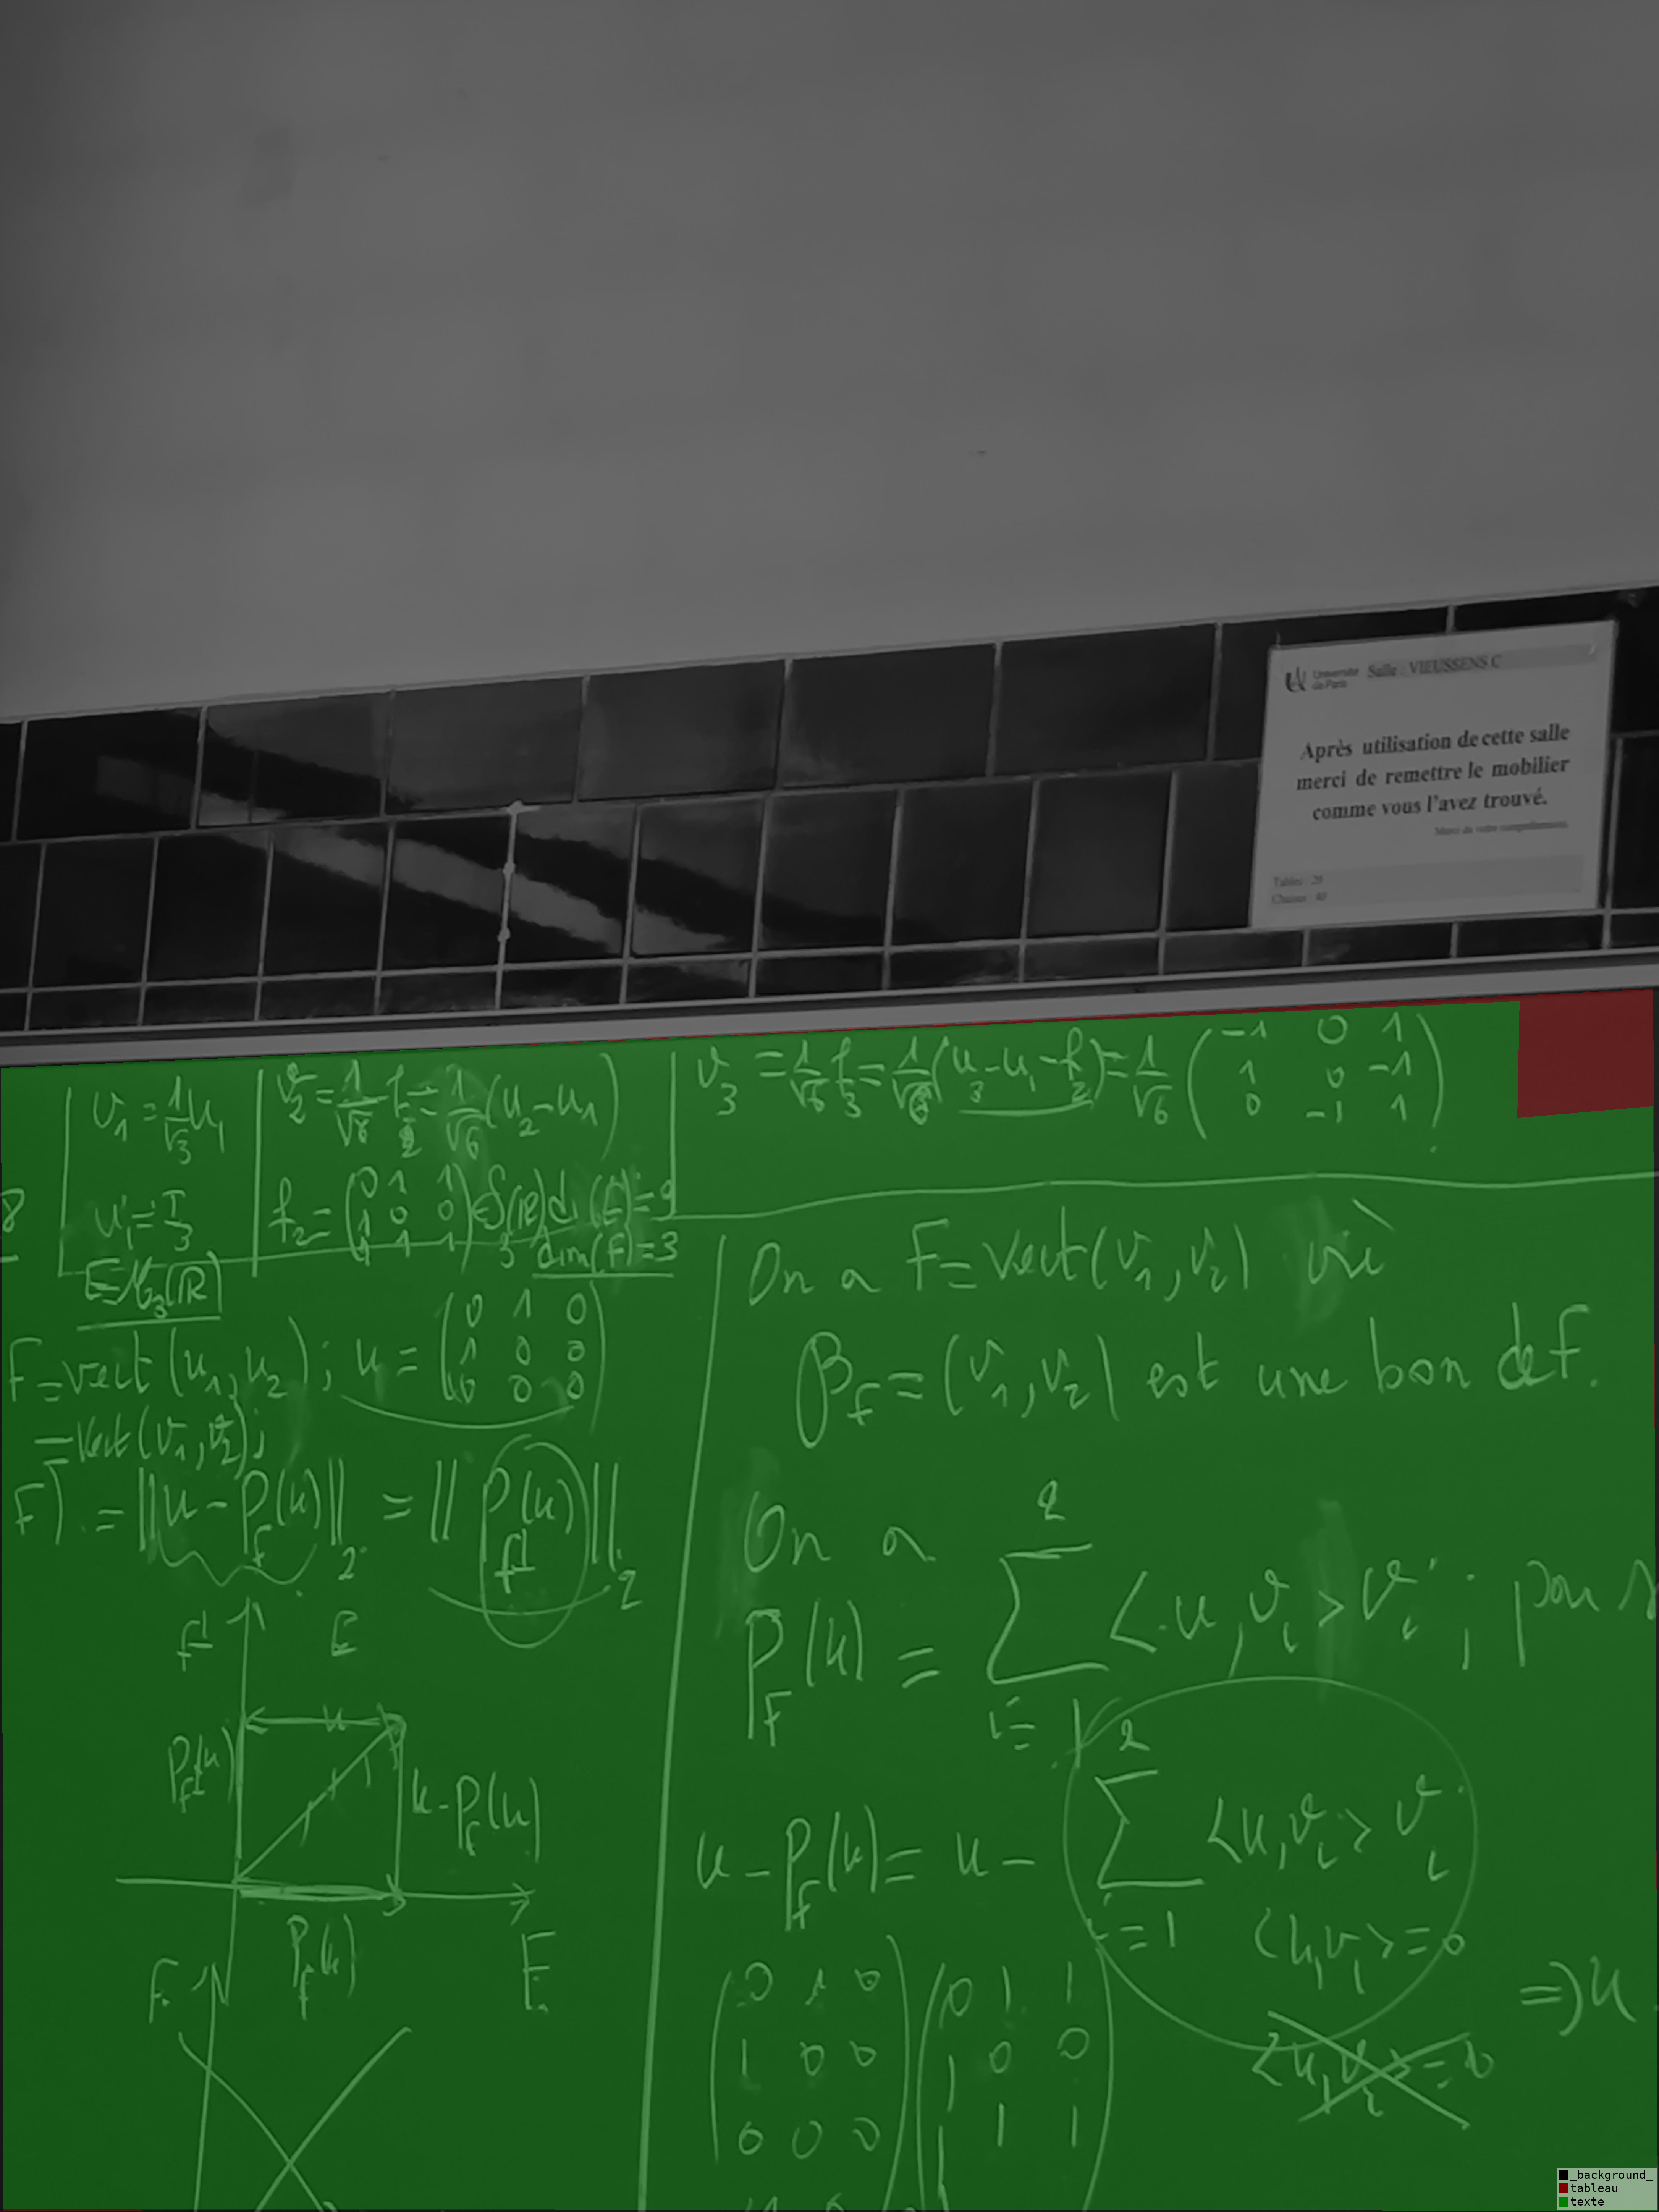 Université de Paris Salle : VIEUSSENS C
Après utilisation de cette salle
merci de remettre le mobilier
comme vous l'avez trouvé.
Merci de votre compréhension.
Tables : 20
Chaises : 40
v_1 = 1/√3 u_1
u_1 = I_3
E = M_3(ℝ)
v_2 = 1/√6 f_2 = 1/√6 (u_2 - u_1)
f_2 = (0 1 1
1 0 0
1 1 1)
dim(F) = 3
v_3 = 1/√6 f_3 = 1/√6 (u_3 - u_1 - f_2) = 1/√6 (-1 0 1
1 0 -1
0 -1 1)
F = vect(u_1, u_2) ; u = (0 1 0
1 0 0
0 0 0)
= vect(v_1, v_2) ;
F) = ||u - P_F(u)||_2 = ||P_F⊥(u)||_2
F⊥ E
u
P_F⊥(u)
u - P_F(u)
P_F(u)
F
On a F = vect(v_1, v_2)
β_F = (v_1, v_2) est une bon de F.
On a
P_F(u) = ∑_{i=1}^2 <u, v_i> v_i ; pour
u - P_F(u) = u - ∑_{i=1}^2 <u, v_i> v_i
<u, v_1> = 0
<u, v_2> = 0
⇒ u
(0 1 0
1 0 0
0 0 0)
(0 1 1
1 0 0
1 1 1)
_background_
tableau
texte